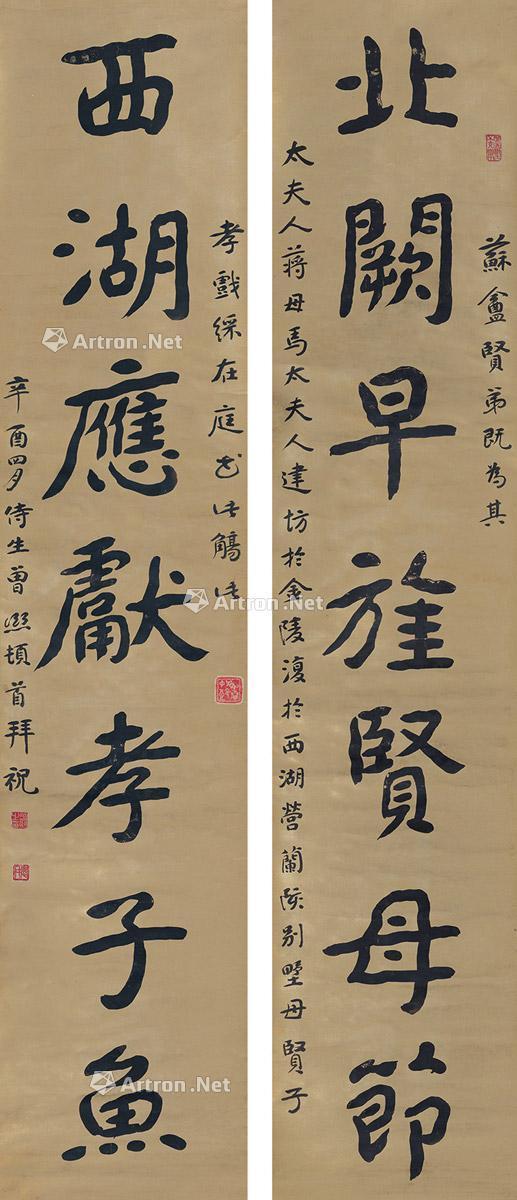 北闕早旌賢母節
蘇盦賢弟既為其
太夫人蔣母馬太夫人建坊於金陵復於西湖營蘭陔別墅母賢子
西湖應獻孝子魚
孝戲綵在庭書此觴
辛酉四月侍生曾熙頓首拜祝
Artron.Net
Artron.Net
Artron.Net
Artron.Net
Artron.Net
Artron.Net